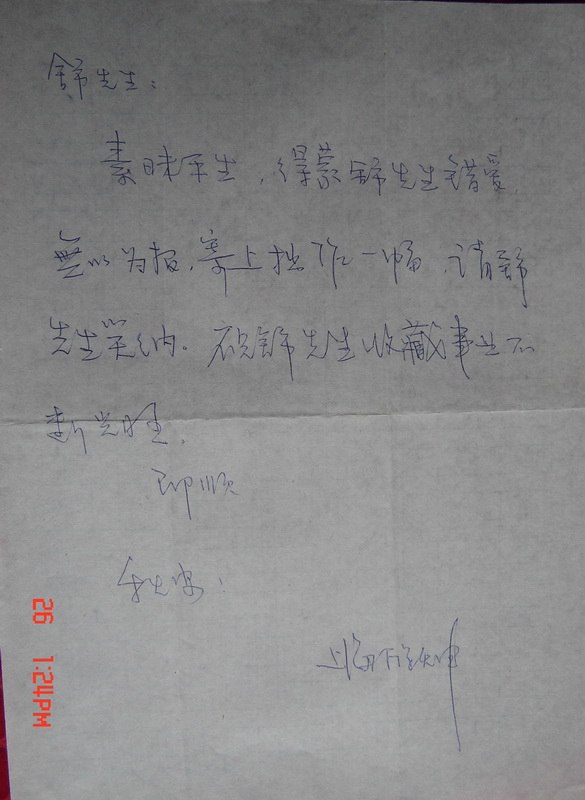 舒先生：
素昧平生，得蒙舒先生错爱，
無以为报，寄上拙作一幅，请舒
先生笑纳。祝舒先生收藏事业不
断兴旺。
即顺
秋安！
上海
26 1:24PM